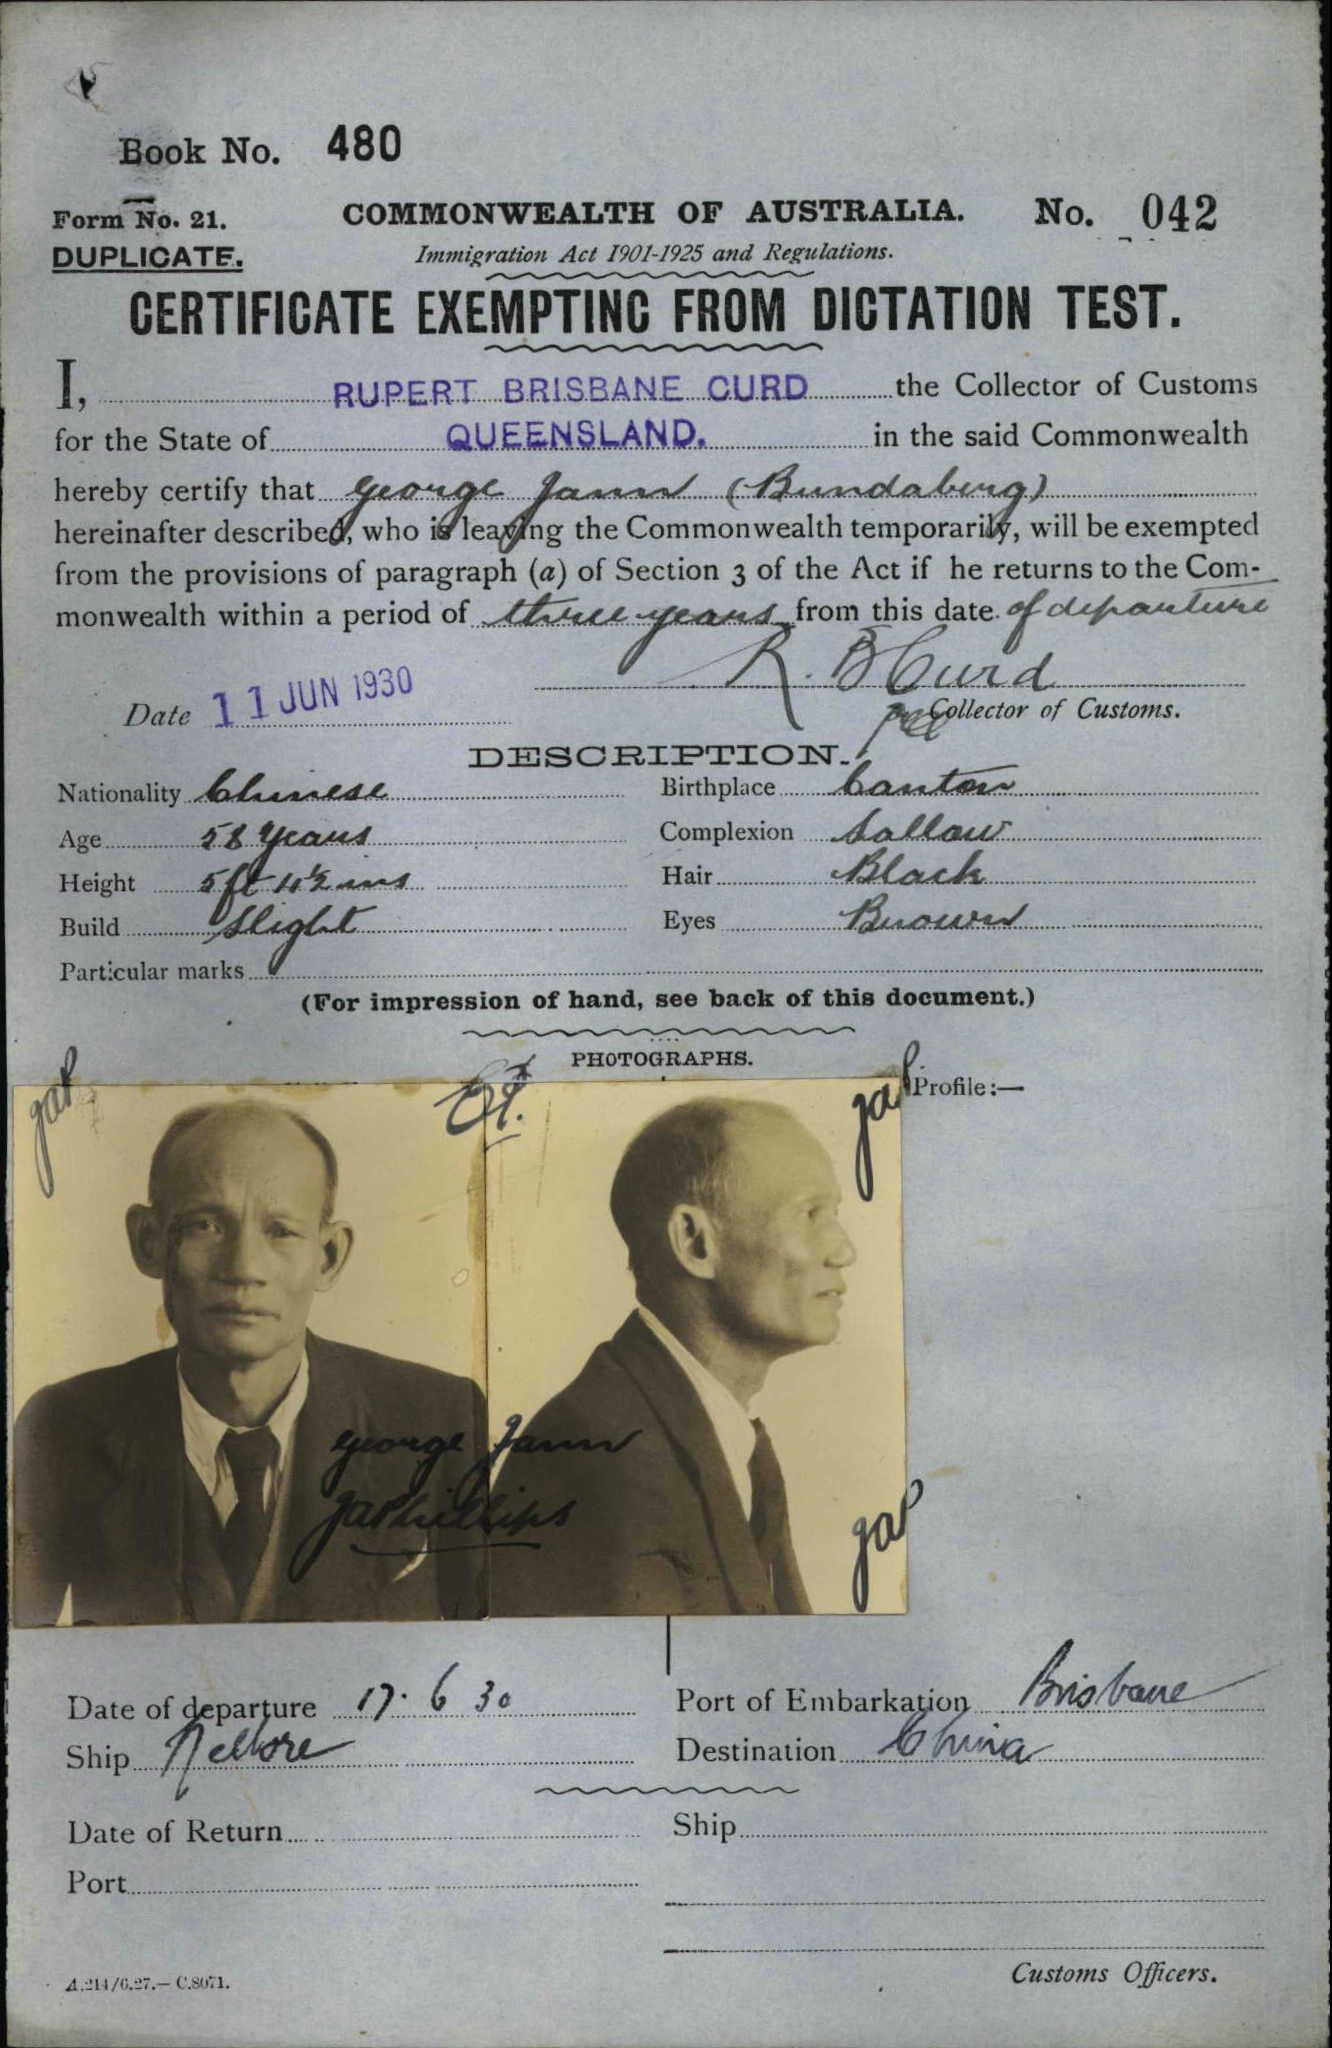 Book No. 480
Form No. 21.
COMMONWEALTH OF AUSTRALIA.
No. 042
DUPLICATE.
Immigration Act 1901-1925 and Regulations.
CERTIFICATE EXEMPTING FROM DICTATION TEST.
I, RUPERT BRISBANE CURD the Collector of Customs
for the State of QUEENSLAND. in the said Commonwealth
hereby certify that George Jann (Bundaberg)
hereinafter described, who is leaving the Commonwealth temporarily, will be exempted
from the provisions of paragraph (a) of Section 3 of the Act if he returns to the Com-
monwealth within a period of three years from this date of departure
R. B Curd
Date 11 JUN 1930
Collector of Customs.
DESCRIPTION.
Nationality Chinese
Birthplace Canton
Age 58 years
Complexion Sallow
Height 5 ft 11½ ins
Hair Black
Build Slight
Eyes Brown
Particular marks
(For impression of hand, see back of this document.)
PHOTOGRAPHS.
Profile:—
jaP
jaP
George Jann
JaPhillips
jaP
Date of departure 17. 6 30
Port of Embarkation Brisbane
Ship Nellore
Destination China
Date of Return
Ship
Port
Customs Officers.
A.214/6.27.—C.8071.